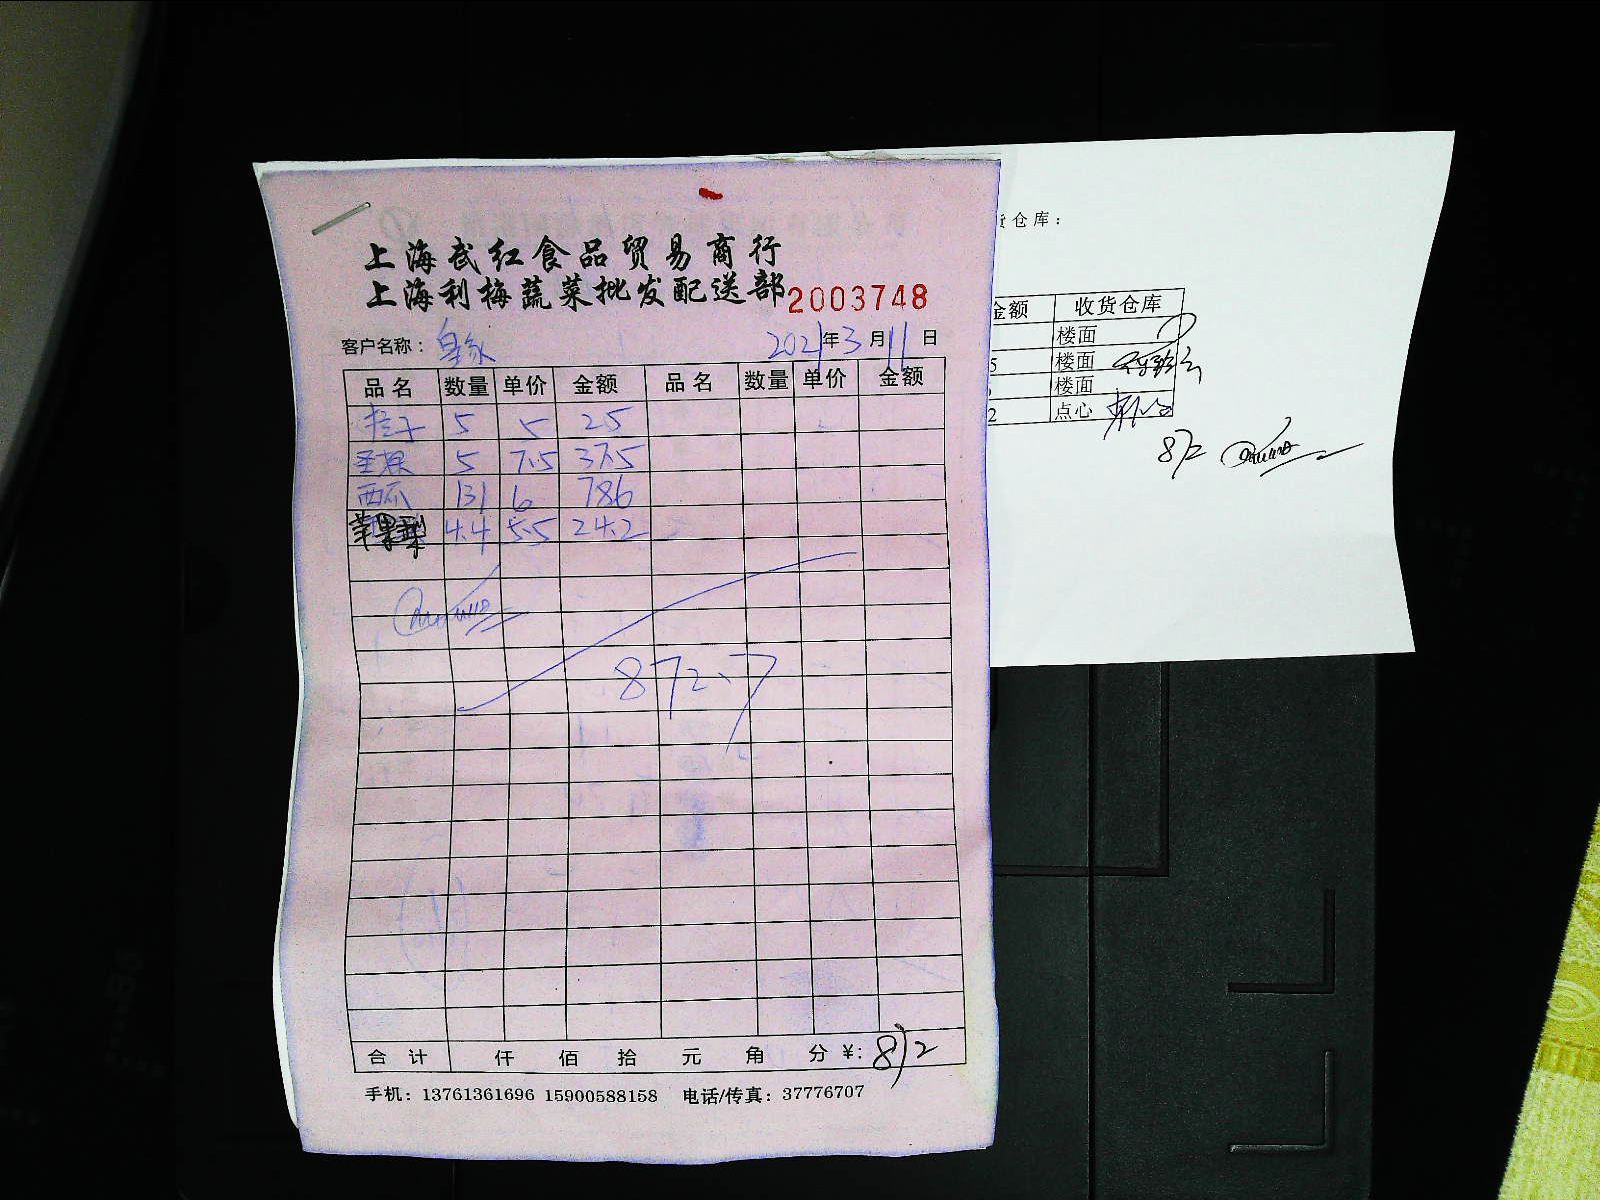 上海武红食品贸易商行
上海利梅蔬菜批发配送部 2003748
客户名称： 2021年3月11日
品名 数量 单价 金额 品名 数量 单价 金额
5 5 25
圣果 5 7.5 37.5
西瓜 131 6 786
苹果梨 4.4 5.5 24.2
872.7
合计 仟 佰 拾 元 角 分 ¥: 872
手机：13761361696 15900588158 电话/传真：37776707
货仓库：
金额 收货仓库
楼面
5 楼面
楼面
2 点心
872